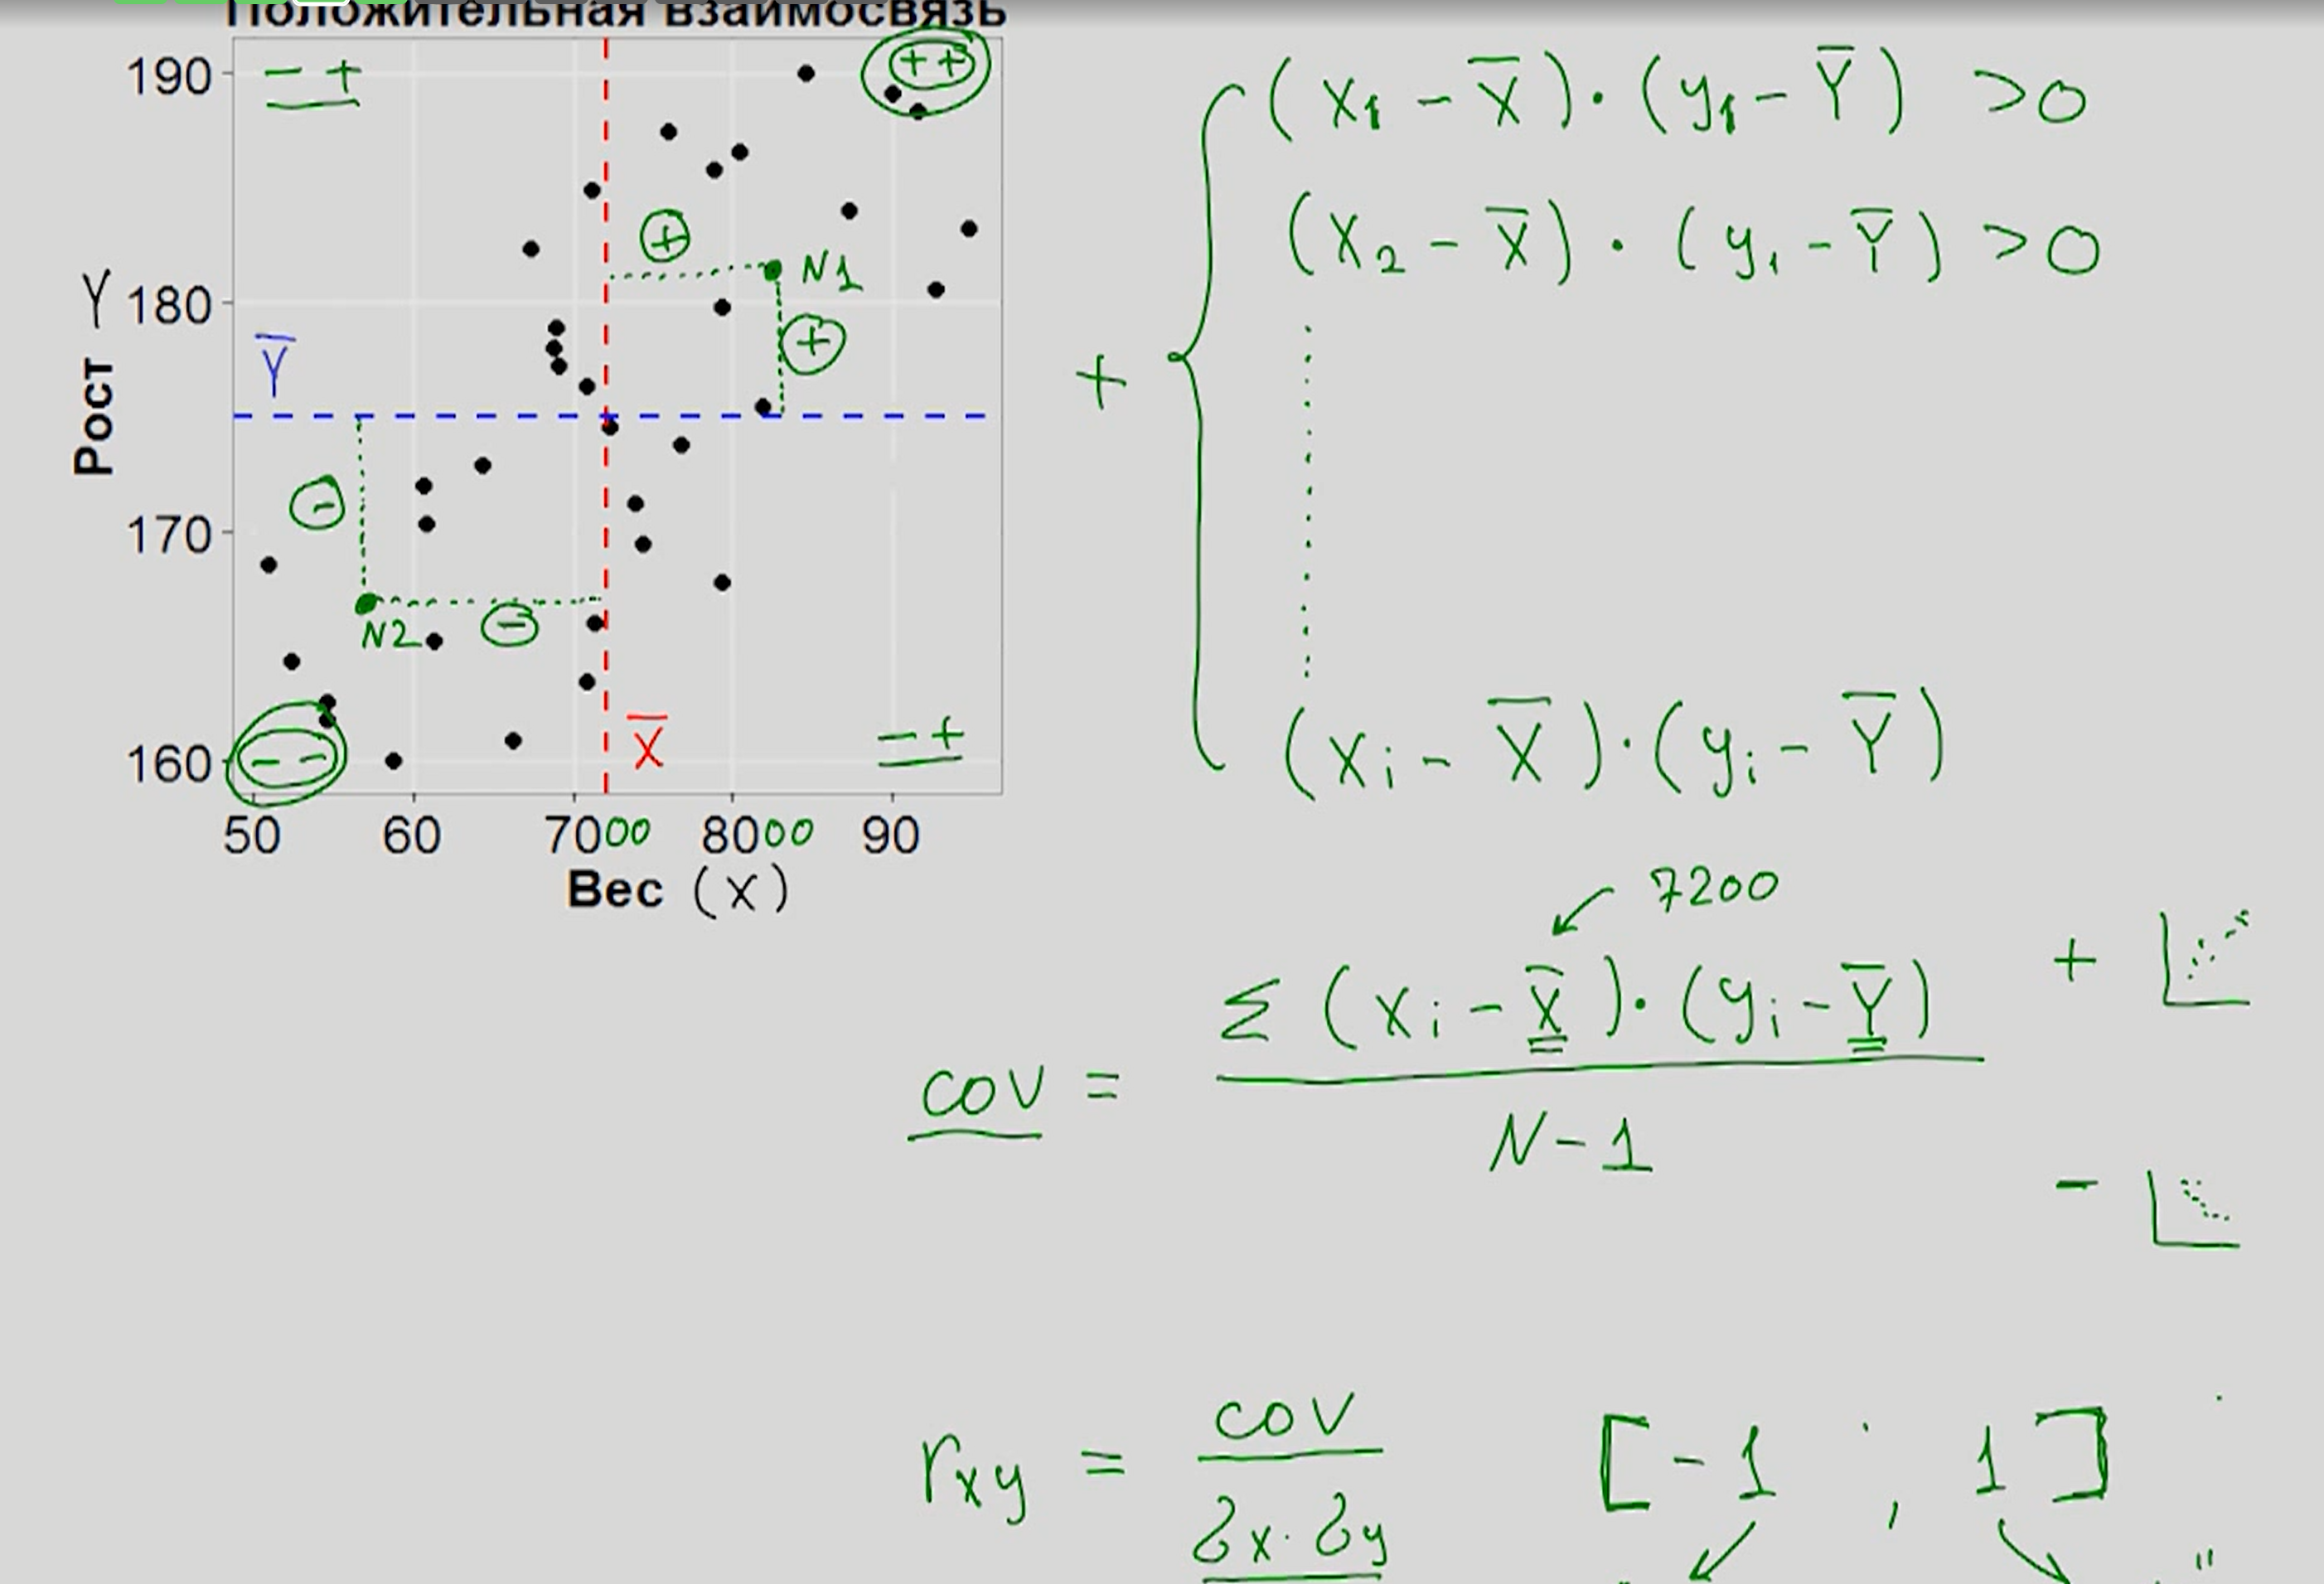 Положительная взаимосвязь
190
180
170
160
Рост Y
50 60 7000 8000 90
Вес (X)
- +
+ +
+
N1
+
Y̅
-
N2
-
- -
X̅
- +
+
(x1 - X̅) · (y1 - Y̅) >0
(x2 - X̅) · (y1 - Y̅) >0
(xi - X̅) · (yi - Y̅)
7200
cov = Σ (xi - X̅) · (yi - Y̅)
N - 1
+
-
rxy = cov
σx · σy
[ -1 ; 1 ]